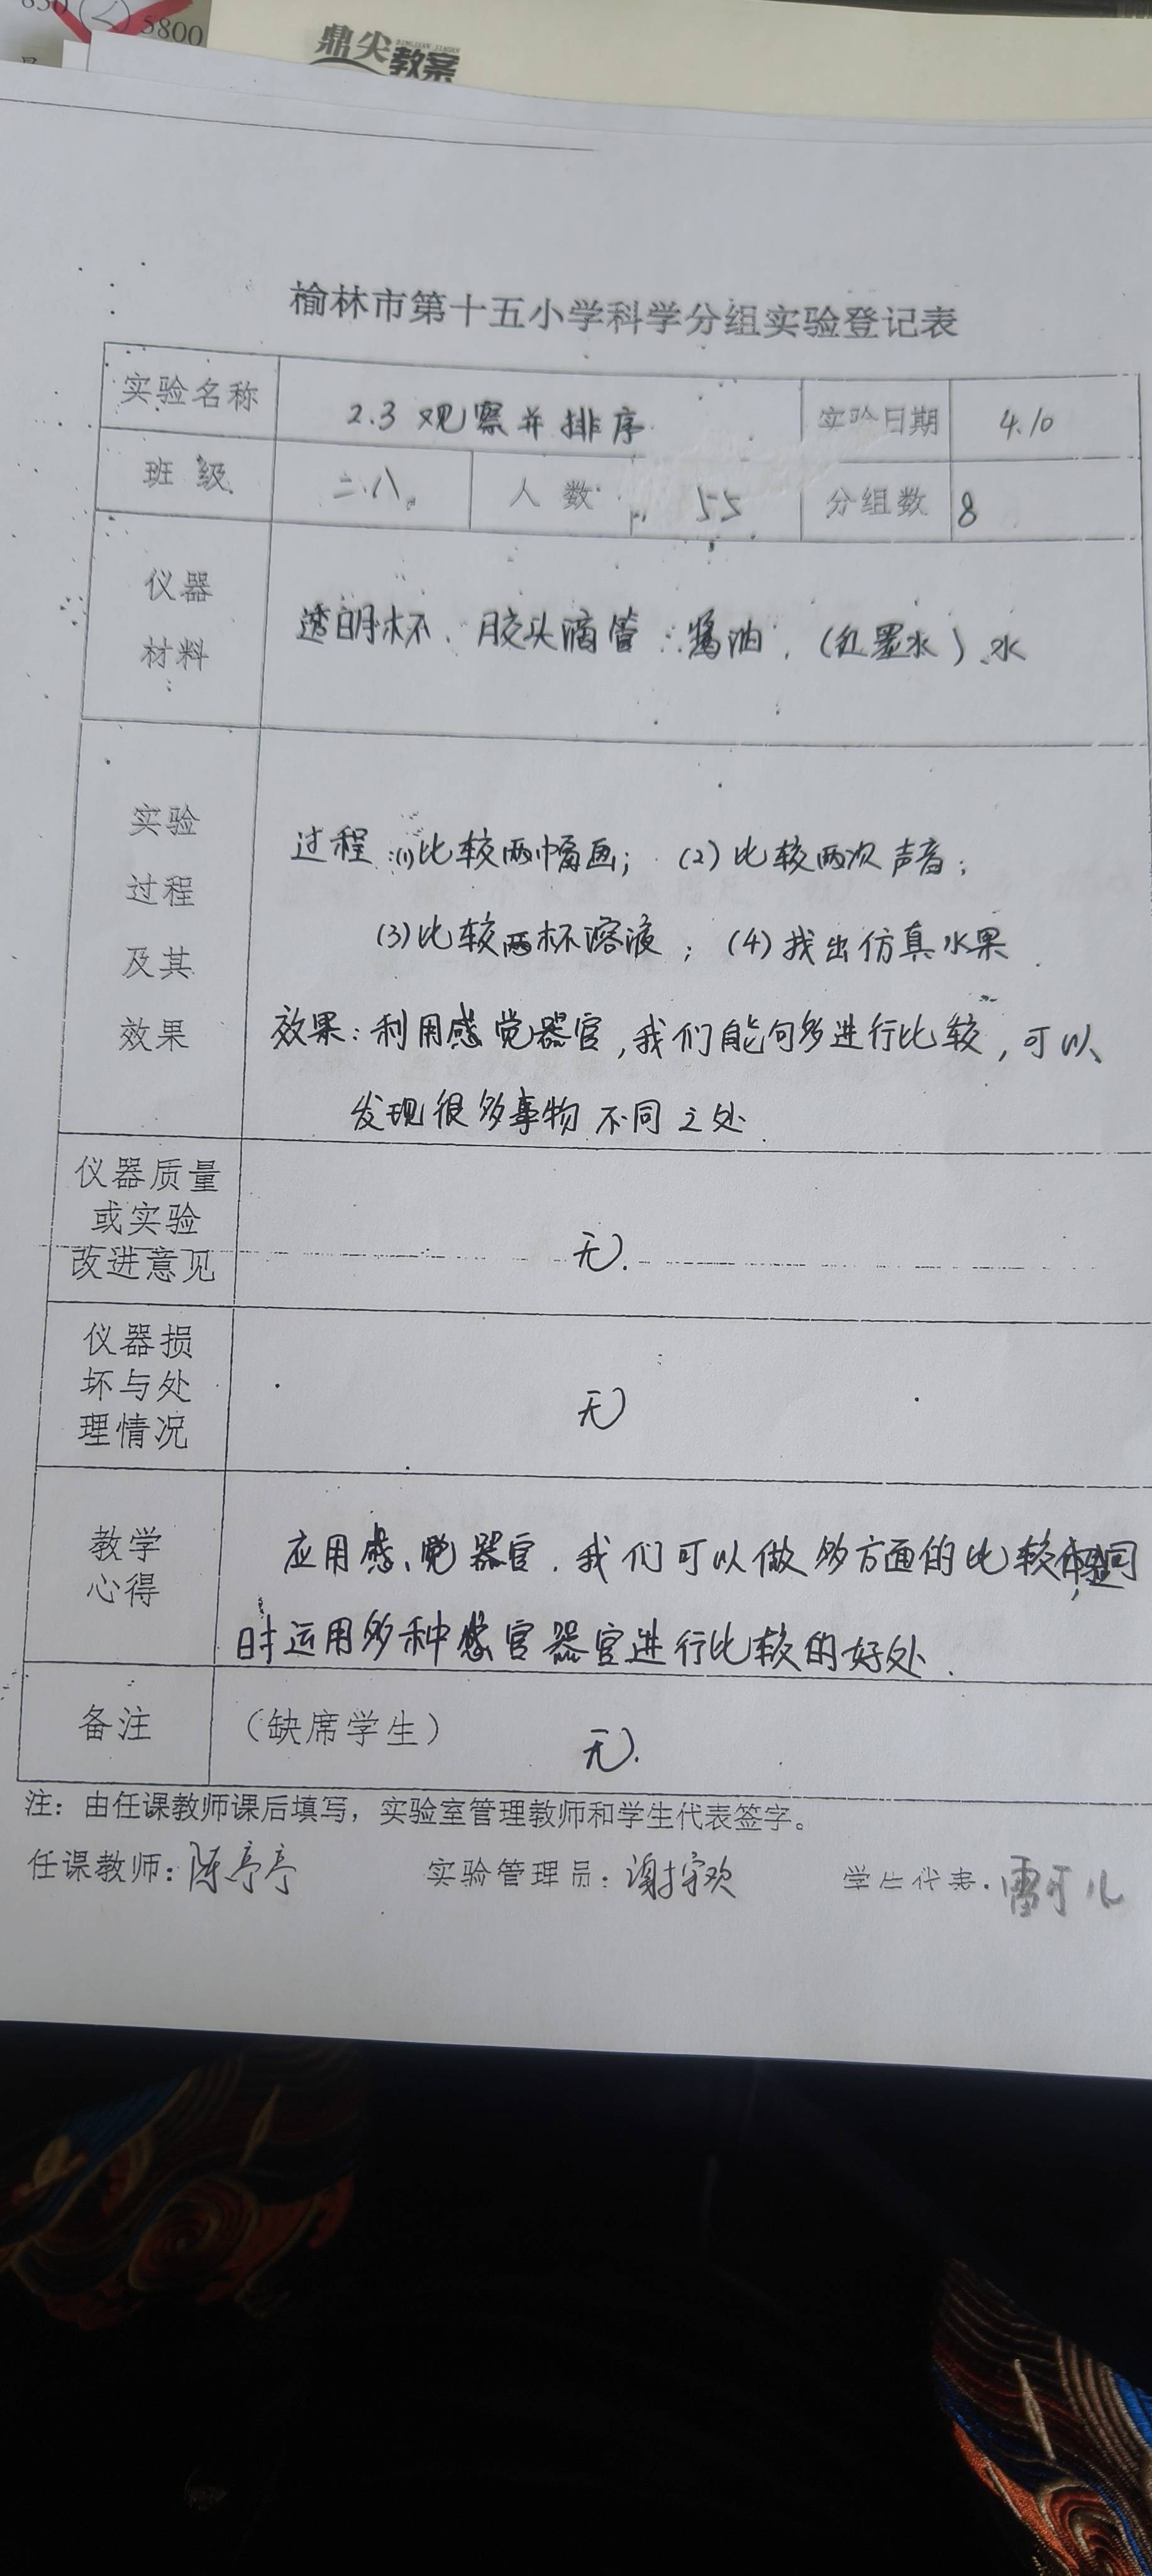 5800
鼎尖
教案
榆林市第十五小学科学分组实验登记表
实验名称 2.3 观察并排序 实验日期 4.10
班级 二.八 人数 55 分组数 8
仪器
材料
透明杯、胶头滴管、酱油、(红墨水)、水
实验
过程
及其
效果
过程:(1)比较两幅画; (2)比较两次声音;
(3)比较两杯溶液; (4)找出仿真水果.
效果:利用感觉器官,我们能够进行比较,可以
发现很多事物不同之处.
仪器质量
或实验
改进意见
无.
仪器损
坏与处
理情况
无
教学
心得
应用感觉器官.我们可以做多方面的比较,体验同
时运用多种感官器官进行比较的好处.
备注 (缺席学生) 无.
注:由任课教师课后填写,实验室管理教师和学生代表签字。
任课教师:陈亭亭 实验管理员:谢守欢 学生代表:雷可儿